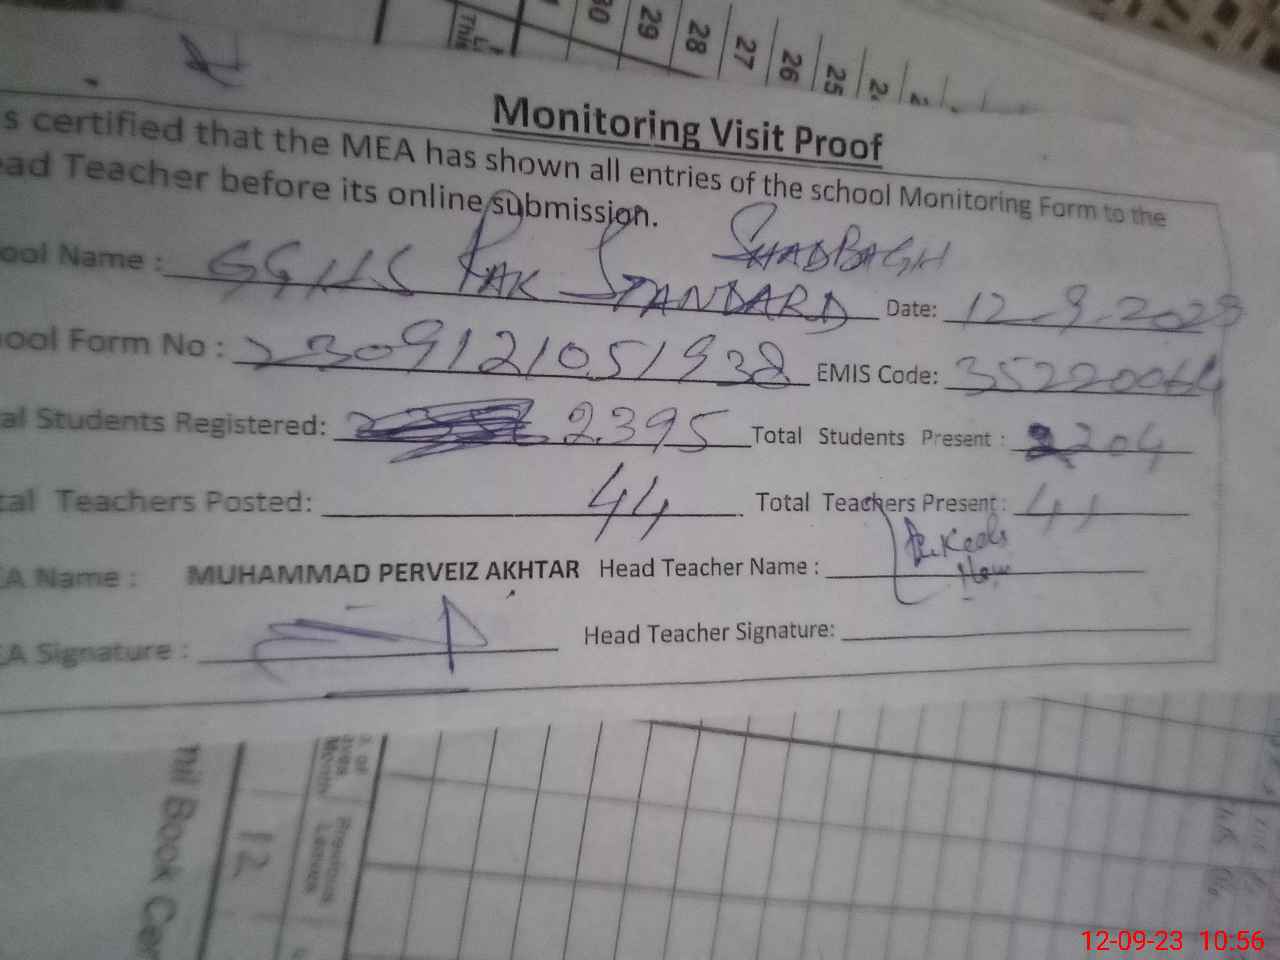 30 29 28 27 26 25
Monitoring Visit Proof
s certified that the MEA has shown all entries of the school Monitoring Form to the
ead Teacher before its online submission.
SHADBAGH
ool Name : GGHS PAK STANDARD Date: 12.9.2023
ool Form No : 2309121051938 EMIS Code: 35220064
al Students Registered: 2395 Total Students Present : 2204
tal Teachers Posted: 44 Total Teachers Present : 41
EA Name : MUHAMMAD PERVEIZ AKHTAR Head Teacher Name :
EA Signature : Head Teacher Signature:
12
Previous
Leaves
mil Book Cen
12-09-23 10:56